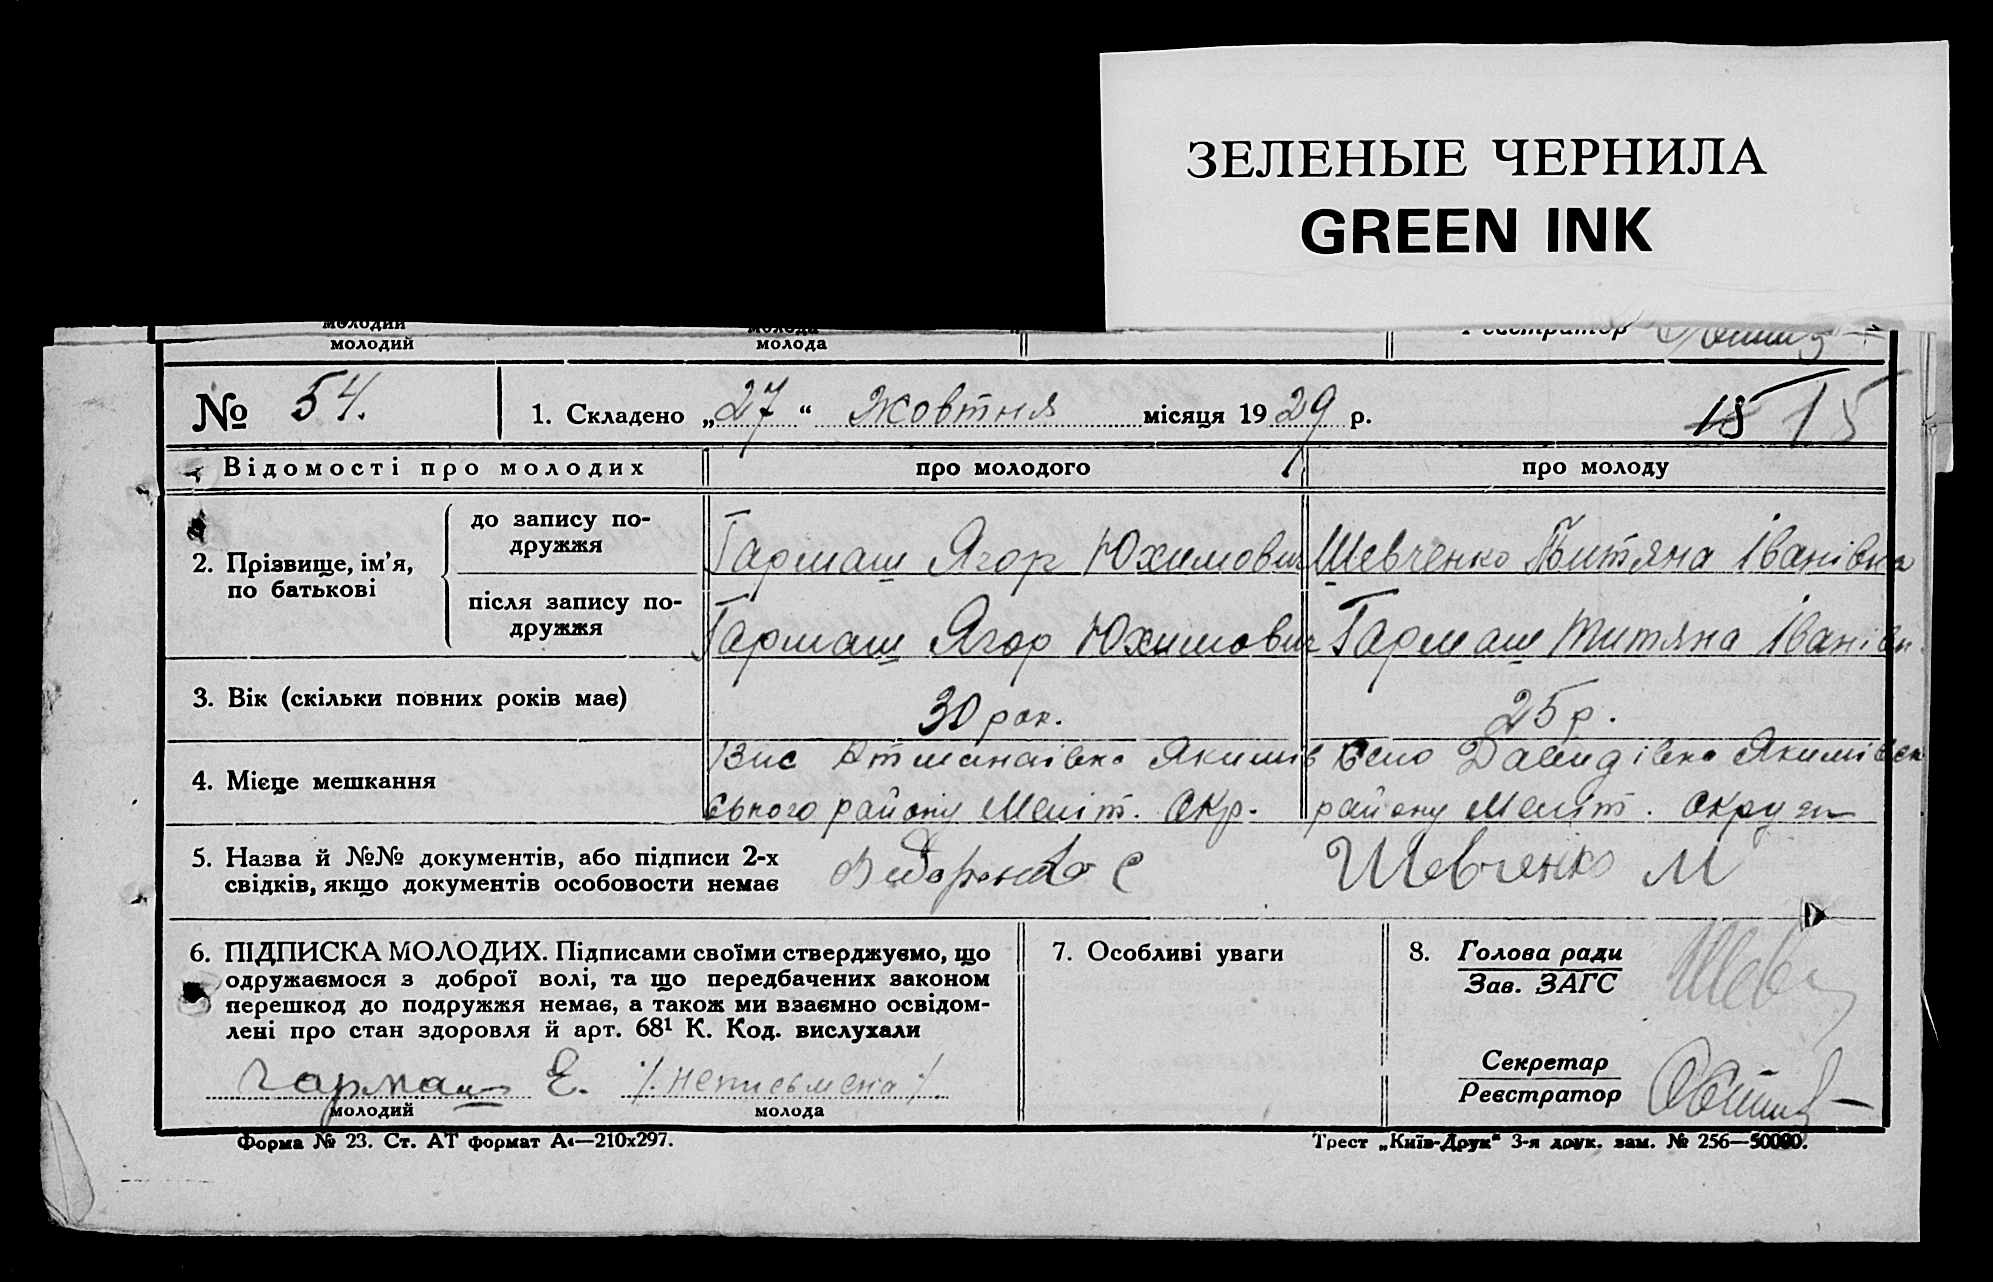 ЗЕЛЕНЫЕ ЧЕРНИЛА
GREEN INK
молодий молода
молодий молода Реєстратор
№ 54. 1. Складено „27“ жовтня місяця 1929 р. 15 15
Відомості про молодих про молодого про молоду
2. Прізвище, ім'я, по батькові
до запису по-
дружжя
Гармаш Ягор Юхимович Шевченко Титяна Іванівна
після запису по-
дружжя
Гармаш Ягор Юхимович Гармаш Титяна Іванівн.
3. Вік (скільки повних років має) 30 рок. 25 р.
4. Місце мешкання
Атманаівка Якимів Село Давидівка Якимівськ
ського району Меліт. Окр. району Меліт. округи
5. Назва й №№ документів, або підписи 2-х
свідків, якщо документів особовости немає
Федоренко С Шевченко М
6. ПІДПИСКА МОЛОДИХ. Підписами своїми стверджуємо, що
одружаємося з доброї волі, та що передбачених законом
перешкод до подружжя немає, а також ми взаємно освідом-
лені про стан здоровля й арт. 68¹ К. Код. вислухали
Гармаш Е. /. неписьмена ./
молодий молода
7. Особливі уваги
8. Голова ради
Зав. ЗАГС
Секретар
Реєстратор
Форма № 23. Ст. АТ формат А4—210x297. Трест „Київ-Друк“ 3-я друк. зам. № 256—50000.